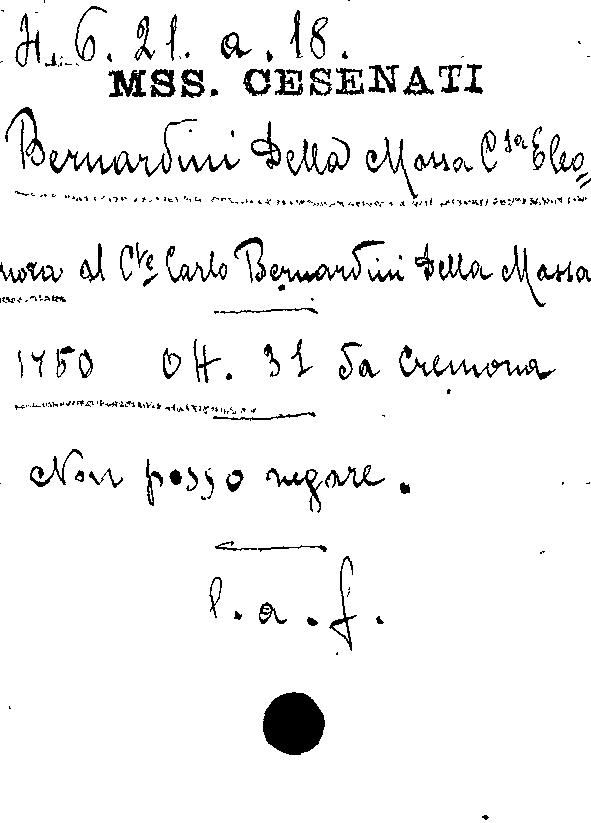 H. 6. 21. a. 18.
MSS. CESENATI
Bernardini Della Massa C.sa Eleo=
nora al C.te Carlo Bernardini Della Massa
1750 Ott. 31 da Cremona
Non posso negare.
l. a. f.